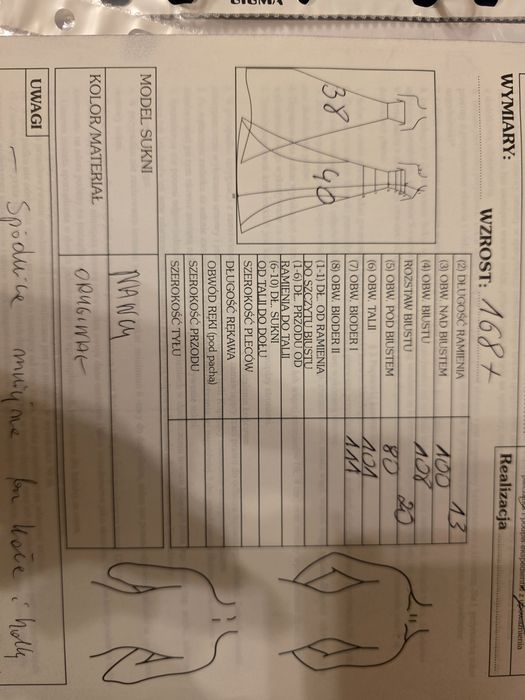 WYMIARY:
WZROST: 168+
Realizacja
38
40
(2) DŁUGOŚĆ RAMIENIA 13
(3) OBW. NAD BIUSTEM 100
(4) OBW. BIUSTU 108
ROZSTAW BIUSTU 20
(5) OBW. POD BIUSTEM 80
(6) OBW. TALII 101
(7) OBW. BIODER I 111
(8) OBW. BIODER II
(1-1) DŁ. OD RAMIENIA
DO SZCZYTU BIUSTU
(1-6) DŁ. PRZODU OD
RAMIENIA DO TALII
(6-10) DŁ. SUKNI
OD TALII DO DOŁU
SZEROKOŚĆ PLECÓW
DŁUGOŚĆ RĘKAWA
OBWÓD RĘKI (pod pachą)
SZEROKOŚĆ PRZODU
SZEROKOŚĆ TYŁU
MODEL SUKNI NANCY
KOLOR/MATERIAŁ ORYGINAŁ
UWAGI
– Spódnica